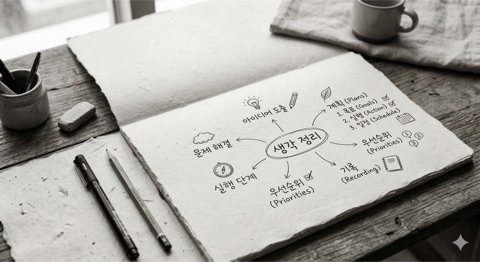 생각 정리
아이디어 도출
계획 (Plans)
1. 목표 (Goals)
2. 실행 (Action)
3. 일정 (Schedule)
우선순위
(Priorities)
기록
(Recording)
우선순위
(Priorities)
실행 단계
문제 해결